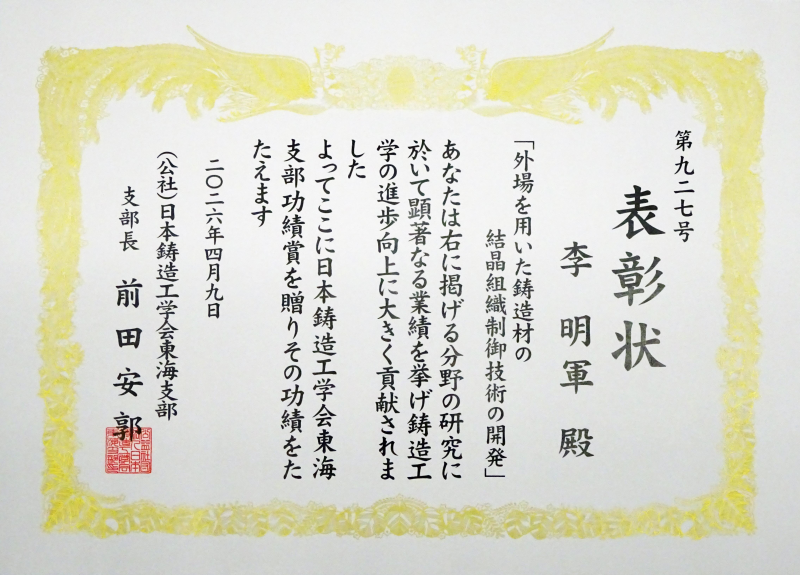 第九二七号
表彰状
李明軍殿
「外場を用いた鋳造材の
結晶組織制御技術の開発」
あなたは右に掲げる分野の研究に
於いて顕著なる業績を挙げ鋳造工
学の進歩向上に大きく貢献されま
した
よってここに日本鋳造工学会東海
支部功績賞を贈りその功績をた
たえます
二〇二六年四月九日
(公社)日本鋳造工学会東海支部
支部長 前田安郭